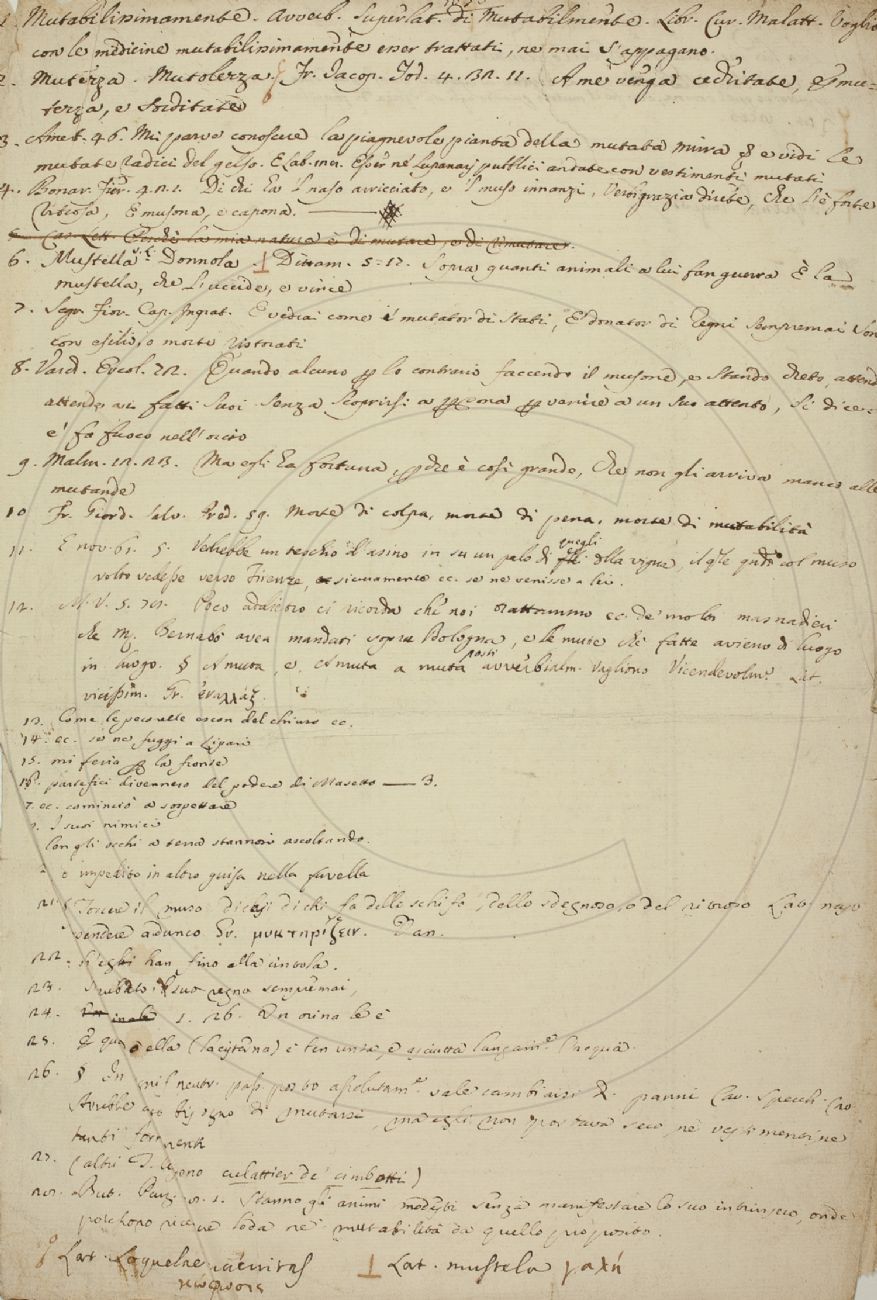 1. Mutabilissimamente. Avverb. Superlat. di Mutabilmente. Libr. Cur. Malatt. Voglio
con le medicine mutabilissimamente esser trattati, ne mai s'appagano.
2. Mutezza. Mutolezza. Fr. Jacop. Tod. 4. 32. 11. A me venga cechitate, E mu-
tezza, e sorditate
3. Amet. 46. Mi parve conoscere la piagnevole pianta della mutata mirra § e vidi le
mutate radici del gelso. E Lab. Esser ne' lupanari pubblici andata con vestimenti mutati
4. Bonar. Fier. 4. 2. 1. Di chi ha 'l naso arricciato, e 'l muso innanzi, Verbigrazia direte, che l'è forte
Viticosa, E musona, e capona.
5. Car. Lett. Perchè la mia natura è di mutare, e di rimutare.
6. Mustella Donnola ⊥ Dittam. 5. 17. Sopra quanti animali a lui fan guerra È la
mustella, che l'uccide, e vince
7. Segr. Fior. Cap. Ingrat. E vedrai come i mutator di Stati, E donator di Regni sempremai Son
con esilio, o morte ristorati
8. Varch. Ercol. Quando alcuno per lo contrario faccendo il musone, e stando cheto, attend
attende a' fatti suoi senza scoprirsi a persona per venire a un suo attento, si dice:
e' fa fuoco nell'orcio
9. Malm. Ma egli ha fortuna, perchè è così grande, Che non gli arriva manco alle
mutande
10 Fr. Giord. Salv. Pred. 59. Morte di colpa, morte di pena, morte di mutabilità
11. E nov. 61. 5. Vedrebbe un teschio d'asino in su un palo di quegli della vigna, il qle qndo col muso
volto vedesse verso Firenze, sicuramente ec. se ne venisse a lei.
12. M. V. 5. Poco addietro ci ricorda che noi trattammo ec. de' molti masnadieri
che M. Bernabò avea mandati sopra Bologna, e le mute che fatte avieno di luogo
in luogo. § A muta, e, A muta a muta posti avverbialm. vagliono Vicendevolm. Lat.
vicissim. Gr. ἐναλλάξ.
13. Come le pecorelle escon del chiuso ec.
14. ec. se ne fuggì a Lipari
15. mi feria per la fronte
partefici divennero del podere di Masetto — 3.
7. ec. cominciò a sospettare
I suoi nimici
Con gli occhi a terra stannosi ascoltando.
è impedito in altra guisa nella favella
21. Torcere il muso dicesi di chi fa dello schifo, dello sdegnoso, o del ritroso Lat. naso
suspendere adunco Gr. μυκτηρίζειν. Dan.
22. ch'eglin han fino alla cintola.
23. Turbato 'l suo regno sempremai,
24. 1. 26. Un orina le è
25. E qndo ella (la citerna) è ben unta, e asciutta lungam.te l'acqua.
26. § In signif. neutr. pass. posto assolutam.te vale cambiarsi di panni Cav. Specch. Cro
Avrebbe avo bisogno di mutarsi, ma egli non portava seco, nè vestimenti ne
tanti formenti
27. (altri leggono culattier de' cimbotti)
Stanno gli animi modesti senza manifestare lo suo intrinseco, onde
poichono riceve loda ne' mutabilità da quello proposito.
Lat. Loquelae vacuitas
κώφωσις
⊥ Lat. mustela γαλῆ